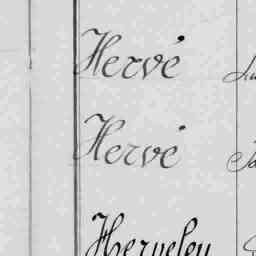 Hervé
Hervé
Herveleu